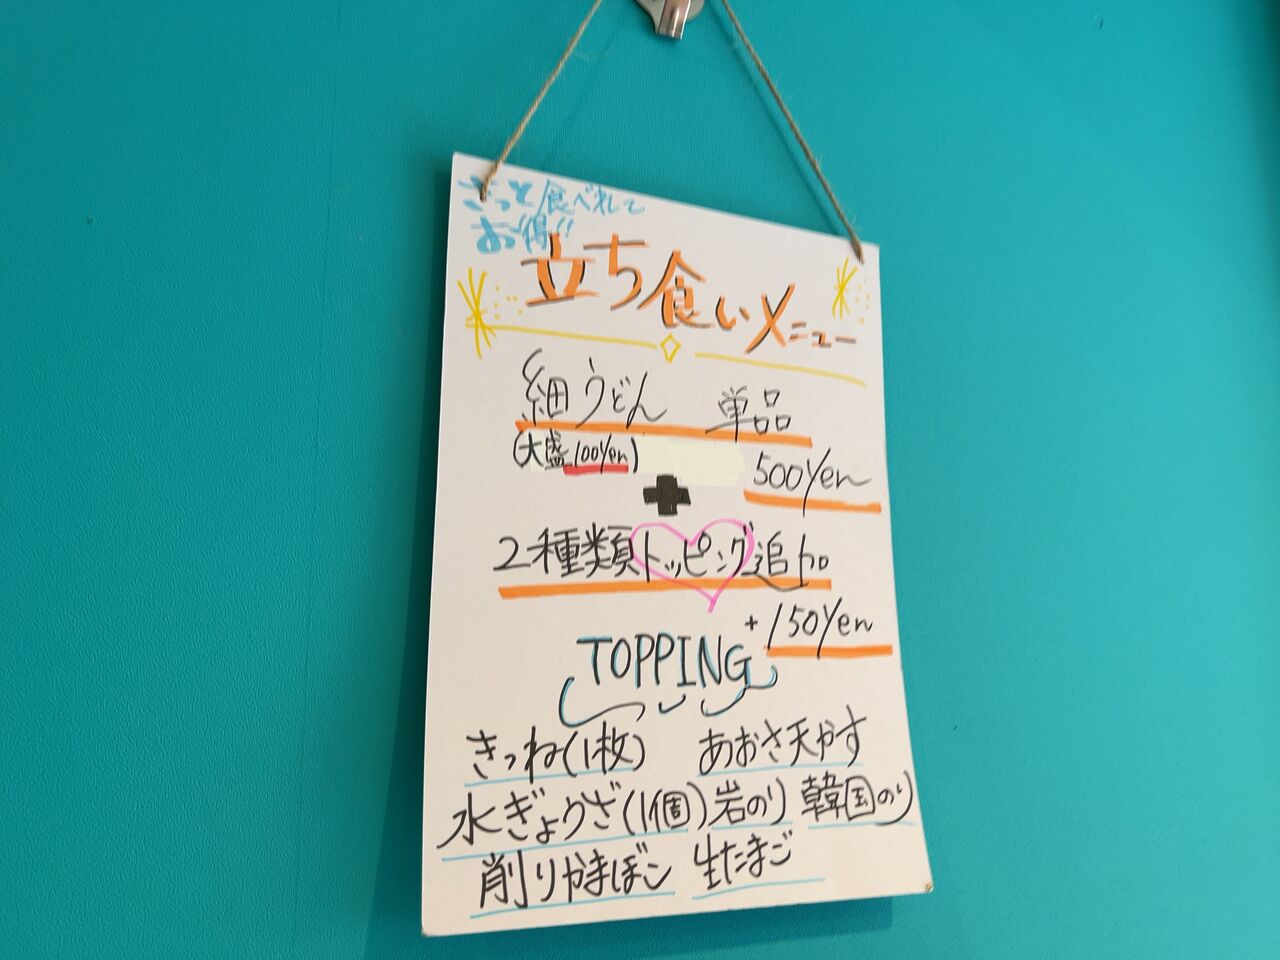 さっと食べれて
お得!!
立ち食いメニュー
細うどん 単品
(大盛100Yen)
500Yen
+
2種類トッピング追加
+150Yen
TOPPING
きつね(1枚) あおさ天かす
水ぎょうざ(1個) 岩のり 韓国のり
削りかまぼこ 生たまご